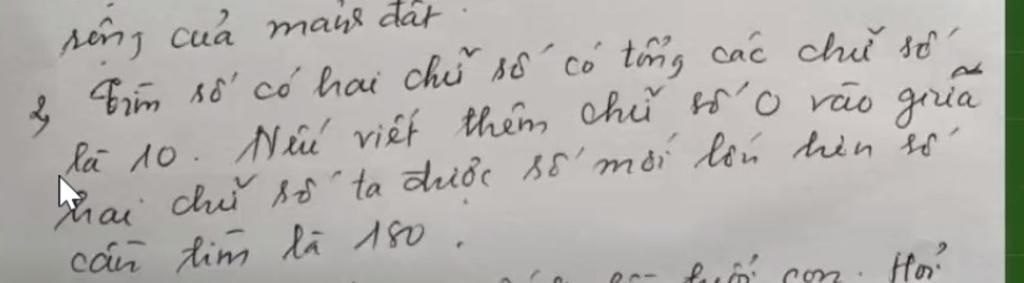 rộng của mảnh đất.
2, Tìm số có hai chữ số có tổng các chữ số
là 10. Nếu viết thêm chữ số 0 vào giữa
hai chữ số ta được số mới lớn hơn số
cần tìm là 180.
tuổi con. Hỏi